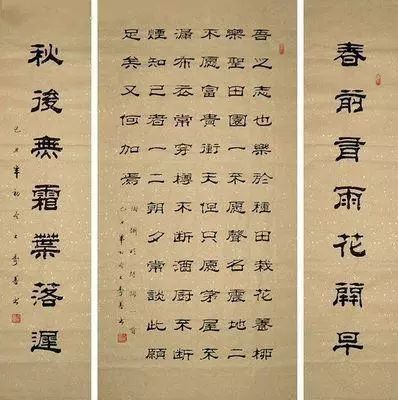 春前有雨花開早
吾之志也樂於種田栽花養柳
樂聖田園一不愿聲名震地二
不愿富貴衝天但只愿茅屋不
漏布衣常穿樽不断酒厨不断
煙知己者一二朝夕常談此願
足矣又何加焉
己丑年初
秋後無霜葉落遲
己丑年初